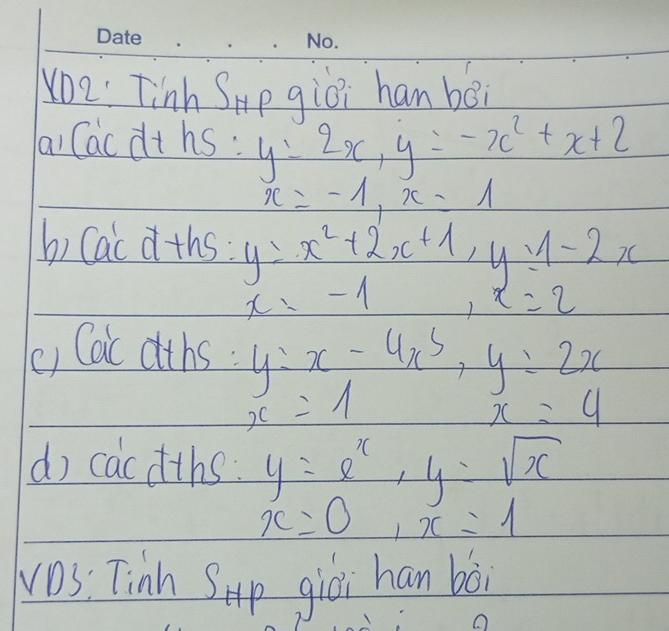 Date . . . No.
VD2: Tính S_HP giới hạn bởi
a) Các đths: y = 2x, y = -x² + x + 2
x = -1, x = 1
b) Các đths: y = x² + 2x + 1, y = 1 - 2x
x = -1, x = 2
c) Các đths: y = x - 4x⁵, y = 2x
x = 1 x = 4
d) các đths: y = e^x, y = √x
x = 0, x = 1
VD3: Tính S_HP giới hạn bởi